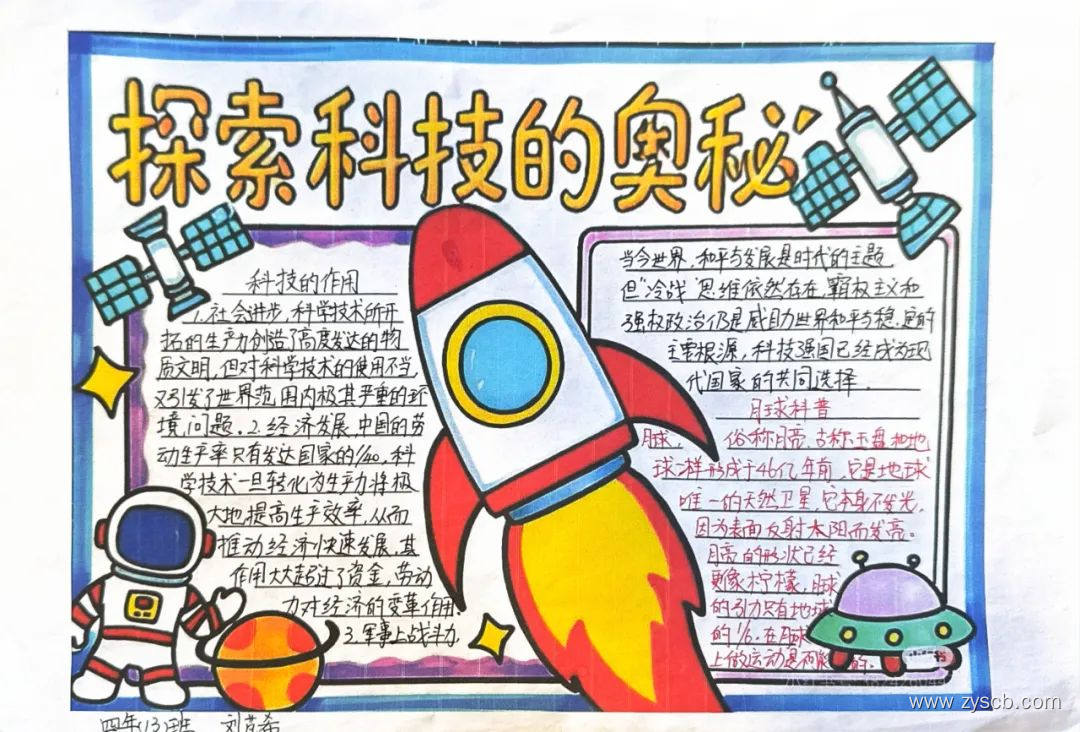 探索科技的奥秘
科技的作用
1.社会进步,科学技术所开
拓的生产力创造了高度发达的物
质文明,但对科学技术的使用不当,
又引发了世界范围内极其严重的环
境问题。2.经济发展,中国的劳
动生产率只有发达国家的1/40,科
学技术一旦转化为生产力将极
大地提高生产效率,从而
推动经济快速发展,其
作用大大超过了资金,劳动
力对经济的变革作用。
3.军事上战斗力
当今世界,和平与发展是时代的主题
但“冷战”思维依然存在,霸权主义和
强权政治仍是威胁世界和平与稳定的
主要根源,科技强国已经成为现
代国家的共同选择.
月球科普
月球,俗称月亮,古称玉盘和地
球一样形成于46亿年前,它是地球
唯一的天然卫星,它本身不发光,
因为表面反射太阳而发亮。
月亮的形状已经
更象柠檬,月球
的引力只有地球
的1/6.在月球
上做运动是不能的。
四年(3)班
www.zyscb.com